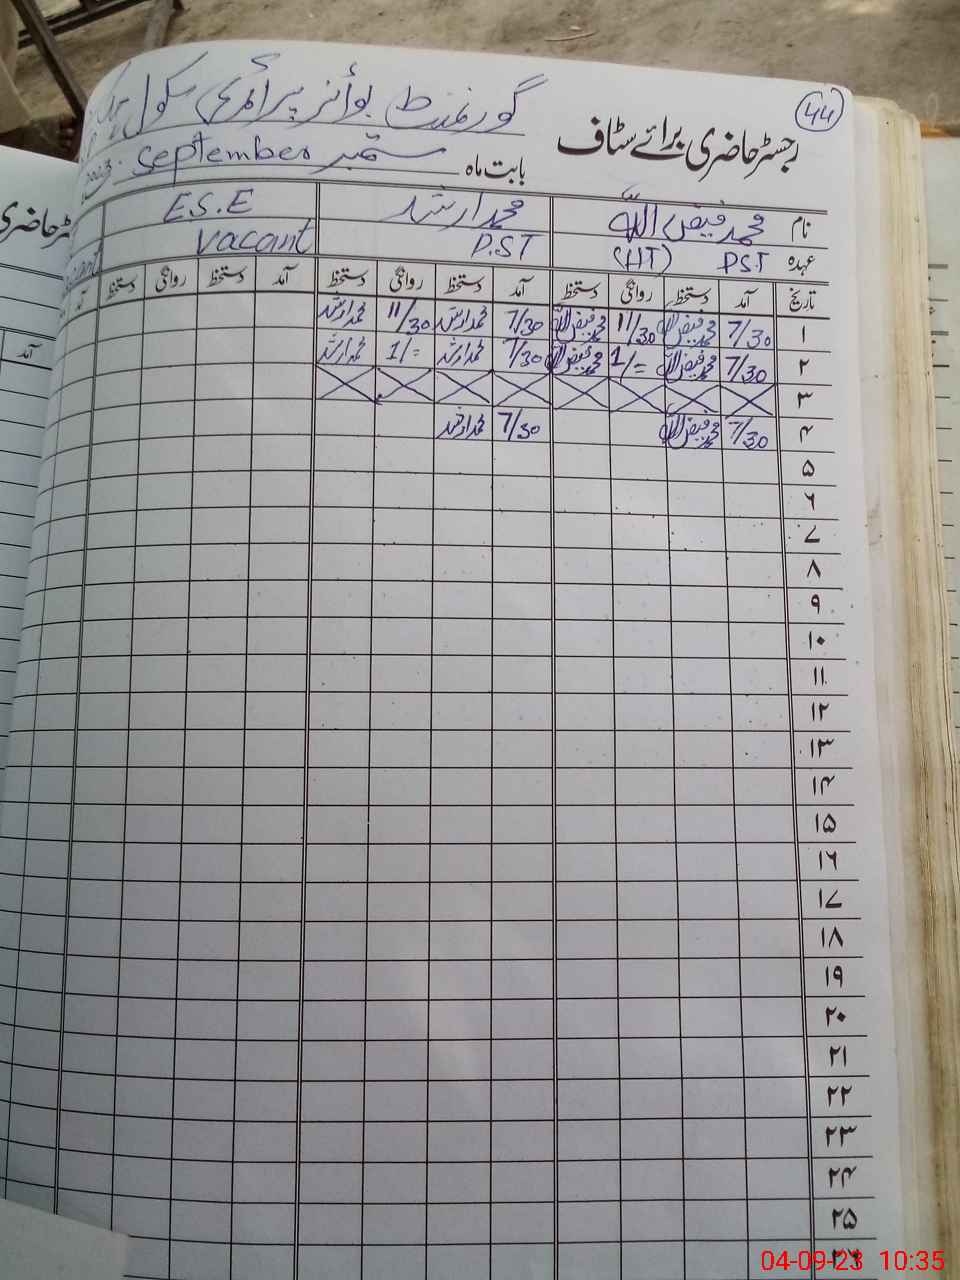 44
رجسٹر حاضری برائے سٹاف گورنمنٹ بوائز پرائمری سکول
بابت ماہ ستمبر September 2023
نام محمد فیض اللہ محمد ارشد E.S.E
عہدہ P.S.T (HT) P.S.T Vacant
تاریخ آمد دستخط روانگی دستخط آمد دستخط روانگی دستخط آمد دستخط روانگی دستخط
۱ 7/30 محمد فیض اللہ 11/30 محمد فیض اللہ 7/30 محمد ارشد 11/30 محمد ارشد
۲ 7/30 محمد فیض اللہ 1/= محمد فیض اللہ 7/30 محمد ارشد 1/= محمد ارشد
۳
۴ 7/30 محمد فیض اللہ 7/30 محمد ارشد
۵
۶
۷
۸
۹
۱۰
۱۱
۱۲
۱۳
۱۴
۱۵
۱۶
۱۷
۱۸
۱۹
۲۰
۲۱
۲۲
۲۳
۲۴
۲۵
۲۶
04-09-23 10:35